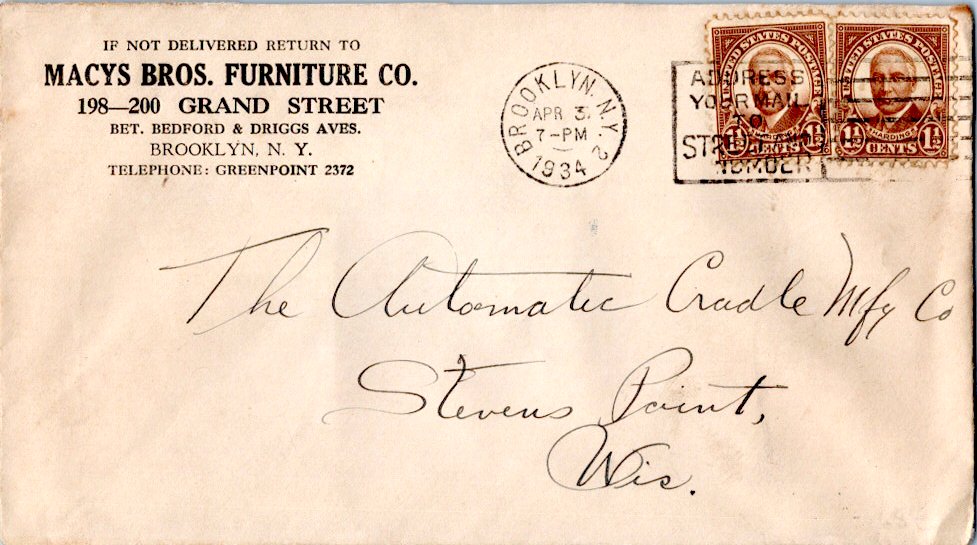 IF NOT DELIVERED RETURN TO
MACYS BROS. FURNITURE CO.
198—200 GRAND STREET
BET. BEDFORD & DRIGGS AVES.
BROOKLYN, N. Y.
TELEPHONE: GREENPOINT 2372
BROOKLYN, N.Y. 2
APR 3
7-PM
1934
ADDRESS
YOUR MAIL
TO
STREET AND
NUMBER
UNITED STATES POSTAGE
1½ CENTS 1½
UNITED STATES POSTAGE
HARDING
1½ CENTS 1½
The Automatic Cradle Mfg Co
Stevens Point,
Wis.